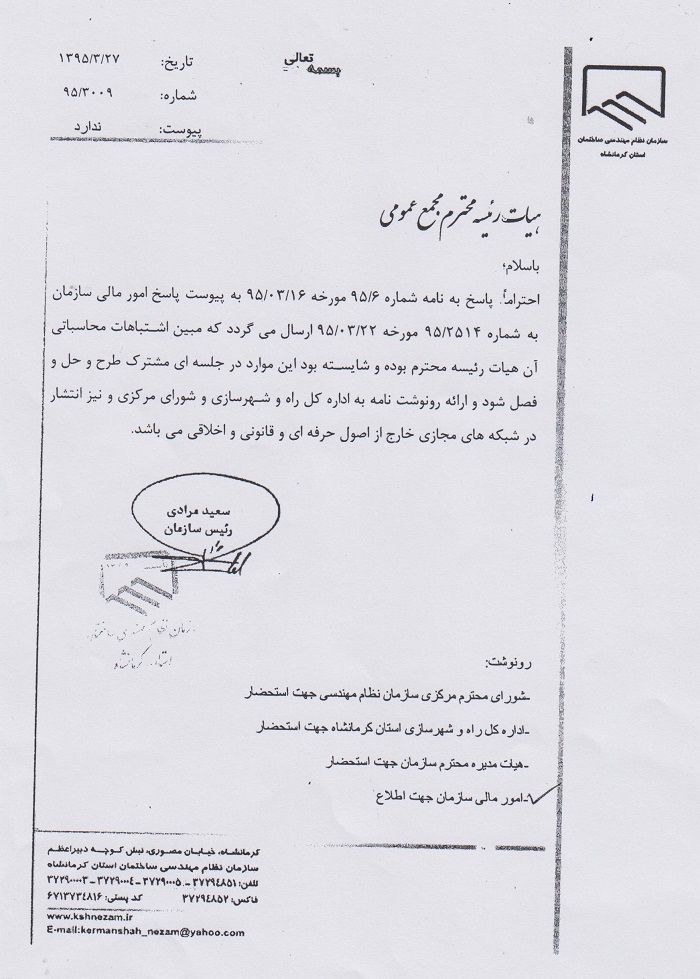 بسمه تعالی
تاریخ: ۱۳۹۵/۳/۲۷
شماره: ۹۵/۳۰۰۹
پیوست: ندارد
سازمان نظام مهندسی ساختمان
استان کرمانشاه
هیات رئیسه محترم مجمع عمومی
باسلام؛
احتراماً. پاسخ به نامه شماره ۹۵/۶ مورخه ۹۵/۰۳/۱۶ به پیوست پاسخ امور مالی سازمان
به شماره ۹۵/۲۵۱۴ مورخه ۹۵/۰۳/۲۲ ارسال می گردد که مبین اشتباهات محاسباتی
آن هیات رئیسه محترم بوده و شایسته بود این موارد در جلسه ای مشترک طرح و حل و
فصل شود و ارائه رونوشت نامه به اداره کل راه و شهرسازی و شورای مرکزی و نیز انتشار
در شبکه های مجازی خارج از اصول حرفه ای و قانونی و اخلاقی می باشد.
سعید مرادی
رئیس سازمان
سازمان نظام مهندسی ساختمان
استان کرمانشاه
رونوشت:
-شورای محترم مرکزی سازمان نظام مهندسی جهت استحضار
-اداره کل راه و شهرسازی استان کرمانشاه جهت استحضار
-هیات مدیره محترم سازمان جهت استحضار
-امور مالی سازمان جهت اطلاع
کرمانشاه، خیابان مصوری، نبش کوچه دبیراعظم
سازمان نظام مهندسی ساختمان استان کرمانشاه
تلفن: ۳۷۲۹۴۸۵۱ - ۳۷۲۹۰۰۰۵ - ۳۷۲۹۰۰۰۴ - ۳۷۲۹۰۰۰۳
فاکس: ۳۷۲۹۴۸۵۲ کد پستی: ۶۷۱۳۷۳۴۸۱۶
www.kshnezam.ir
E-mail:kermanshah_nezam@yahoo.com